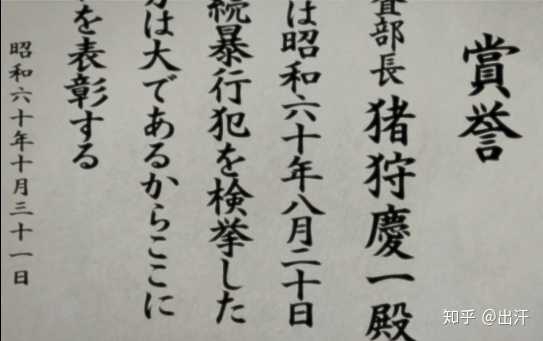 賞誉
査部長 猪狩慶一殿
は昭和六十年八月二十日
続暴行犯を検挙した
は大であるからここに
を表彰する
昭和六十年十月三十一日
知乎 @出汗